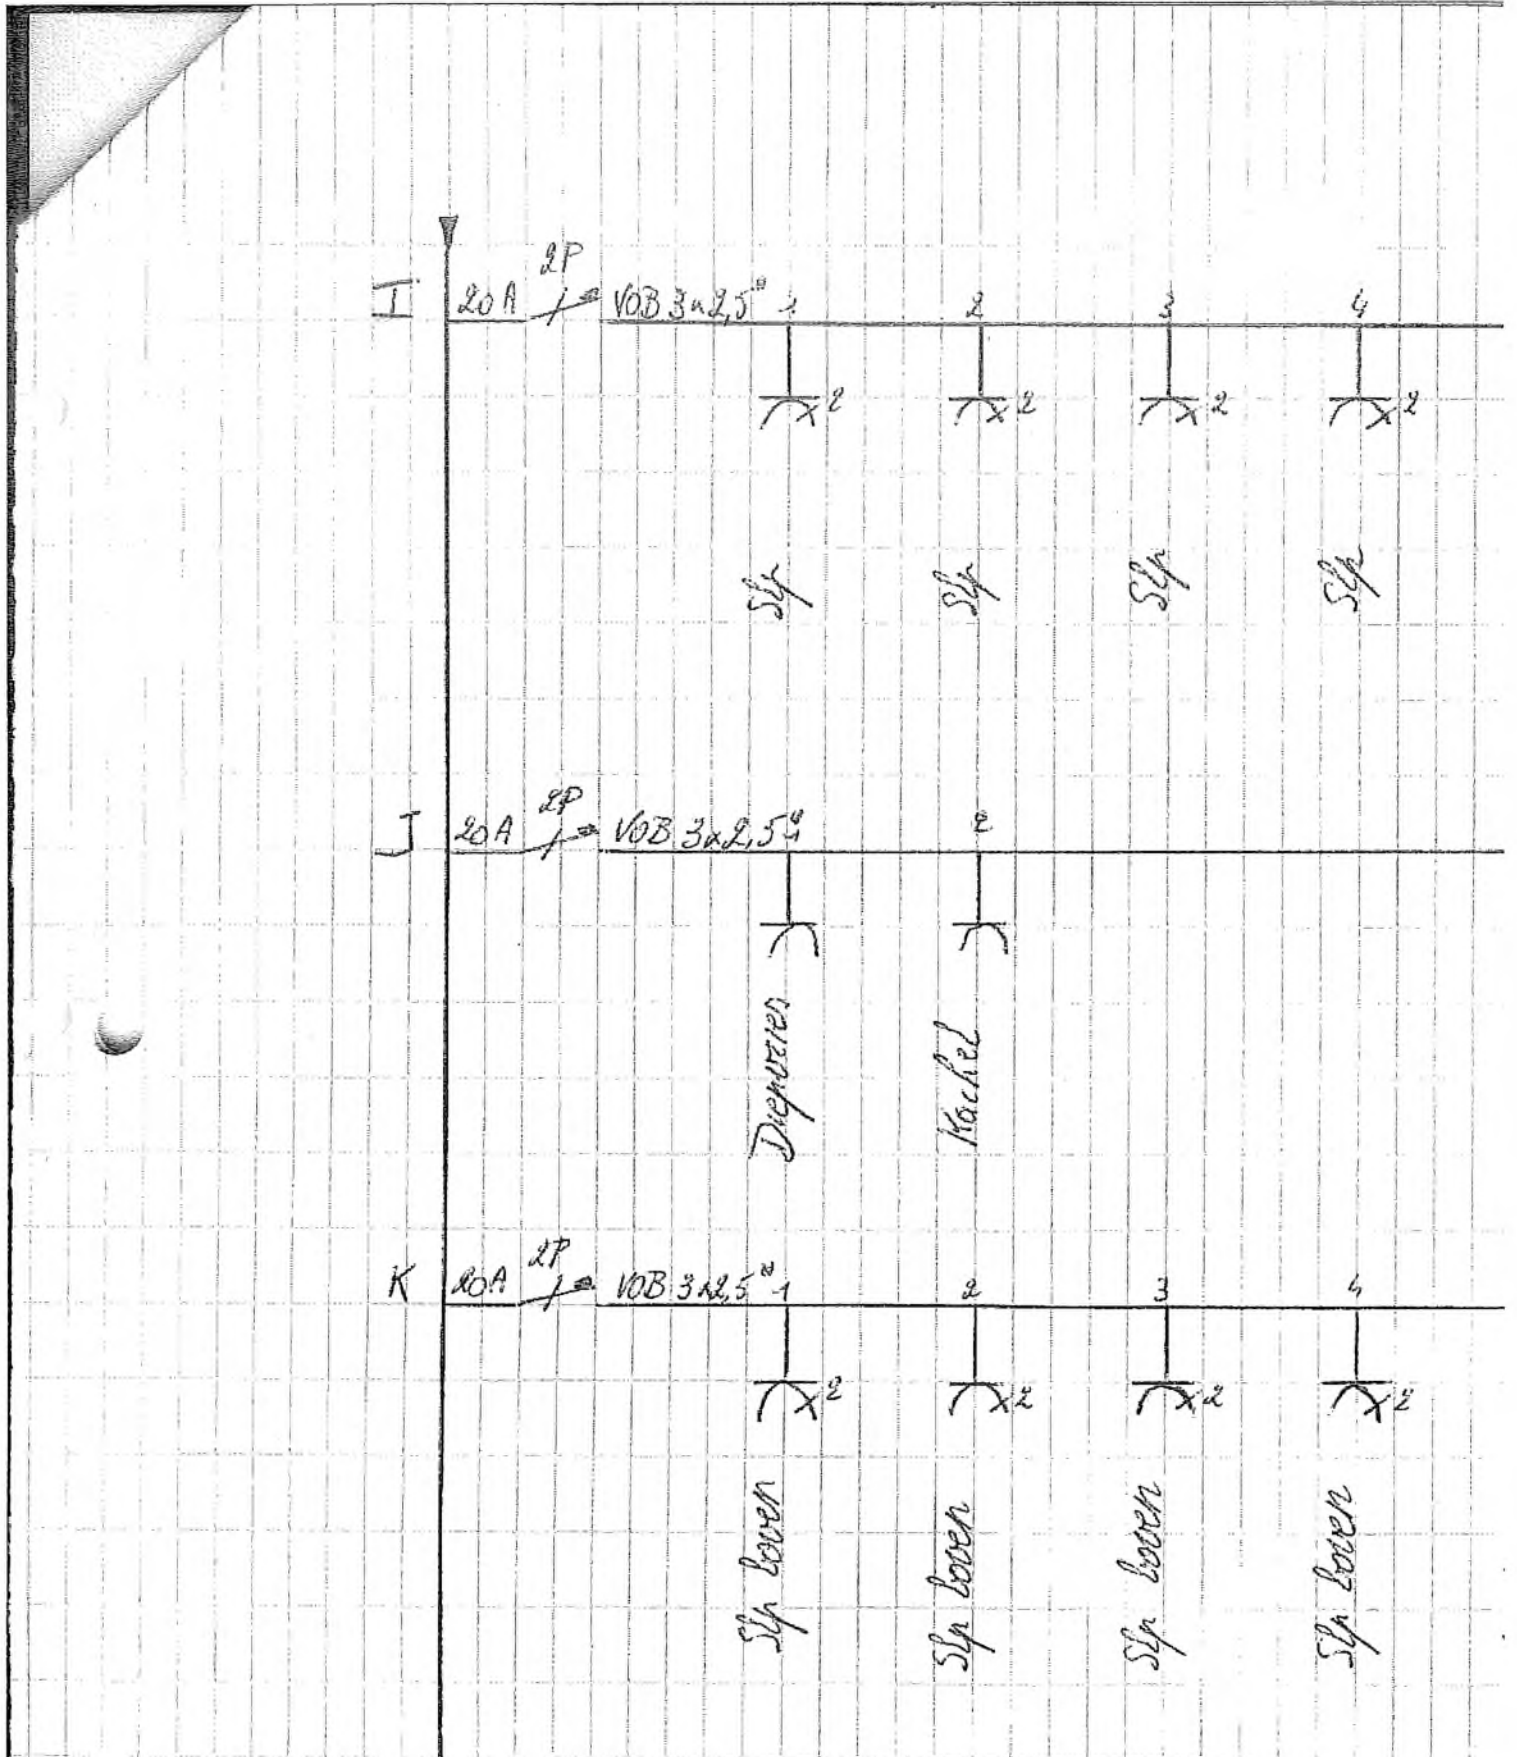 2P
I 20A VOB 3x2,5² 1 2 3 4
2 2 2 2
Slp Slp Slp Slp
2P
J 20A VOB 3x2,5² 1 2
Diepvries Kachel
2P
K 20A VOB 3x2,5² 1 2 3 4
2 2 2 2
Slp boven Slp boven Slp boven Slp boven